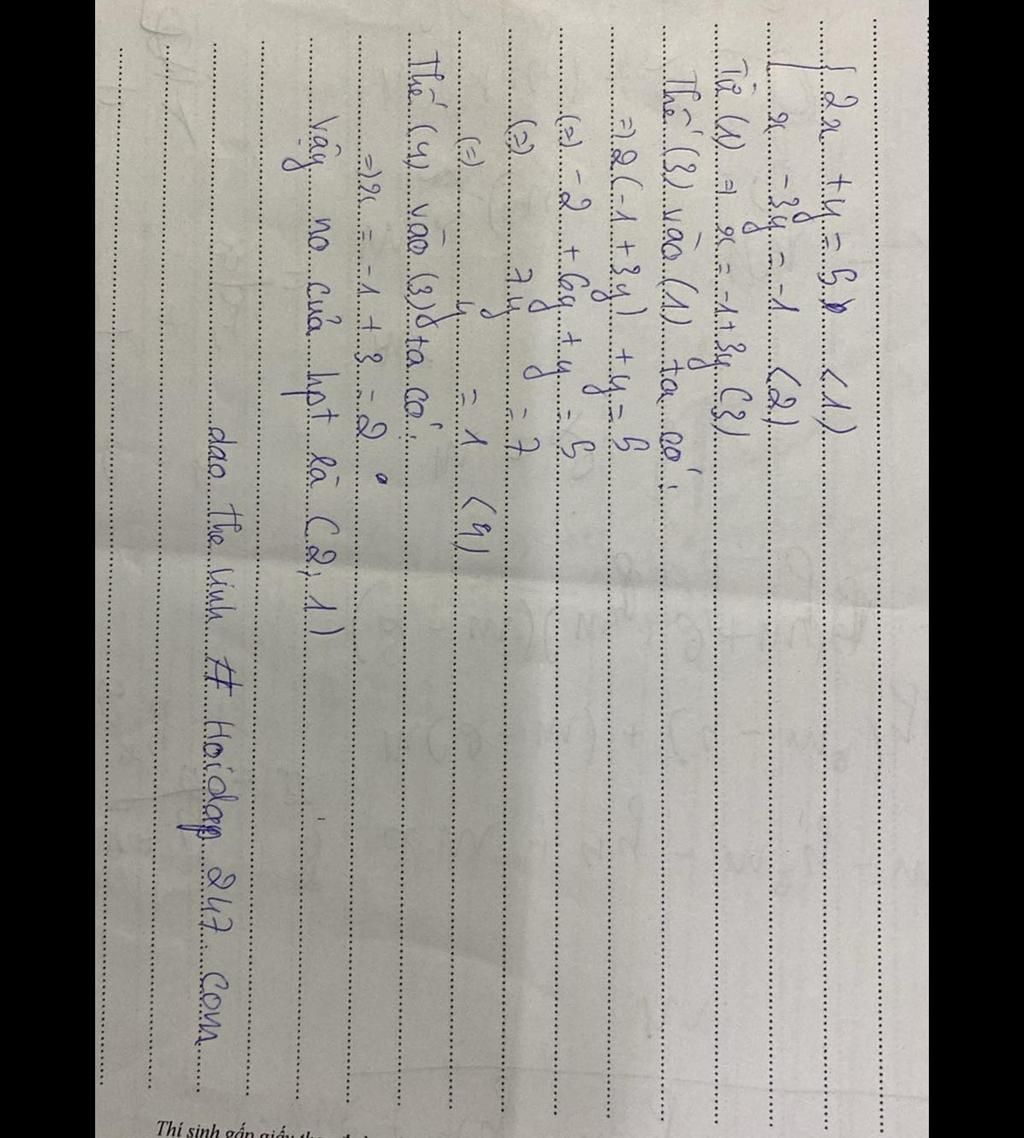 { 2x + y = 5 (1)
x - 3y = -1 (2)
Từ (1) => x = -1+3y (3)
Thế (3) vào (1) ta có:
=> 2(-1+3y) + y = 5
(=) -2 + 6y + y = 5
(=) 7y = 7
(=) y = 1 (4)
Thế (4) vào (3) ta có:
=> x = -1 + 3 = 2
vậy no của hpt là (2; 1)
dao the vinh # Hoidap 247. com
Thí sinh gấp giấy